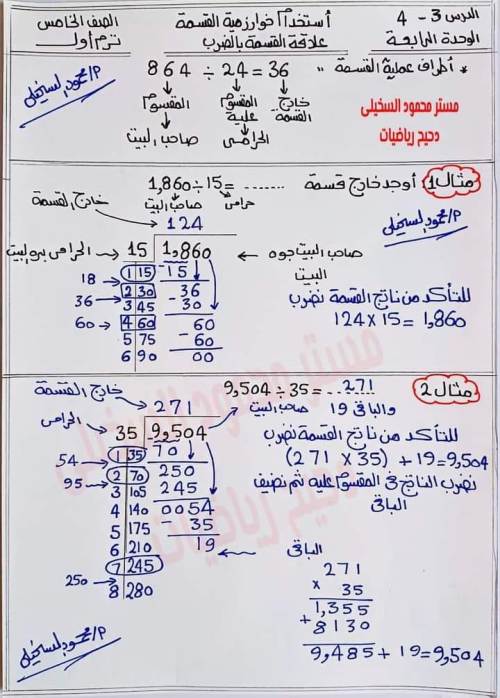 الدرس 3 - 4
الوحدة الرابعة
استخدام خوارزمية القسمة
علاقة القسمة بالضرب
الصف الخامس
ترم أول
* أطراف عملية القسمة ,,
864 ÷ 24 = 36
المقسوم
المقسوم عليه
خارج القسمة
صاحب البيت
الحرامى
مستر محمود السخيلى
دحيح رياضيات
P/محمود السخيلى
مثال 1: أوجد خارج قسمة
1,860 ÷ 15 = ........
صاحب البيت
حرامى
خارج القسمة
124
الحرامى بره البيت
15 1,860
صاحب البيت جوه البيت
1 15
2 30
3 45
4 60
5 75
6 90
18
36
60
- 15
36
- 30
60
- 60
00
للتأكد من ناتج القسمة نضرب
124 × 15 = 1,860
P/محمود السخيلى
مثال 2
9,504 ÷ 35 = ..271..
والباقى 19
خارج القسمة
271
الحرامى
35 9,504
صاحب البيت
1 35
2 70
3 105
4 140
5 175
6 210
7 245
8 280
54
95
250
70
250
245
0054
- 35
19
الباقى
للتأكد من ناتج القسمة نضرب
(271 × 35) + 19 = 9,504
نضرب الناتج فى المقسوم عليه ثم نضيف
الباقى
271
× 35
1,355
+ 8130
9,485 + 19 = 9,504
P/محمود السخيلى
مستر محمود السخيلى
دحيح رياضيات